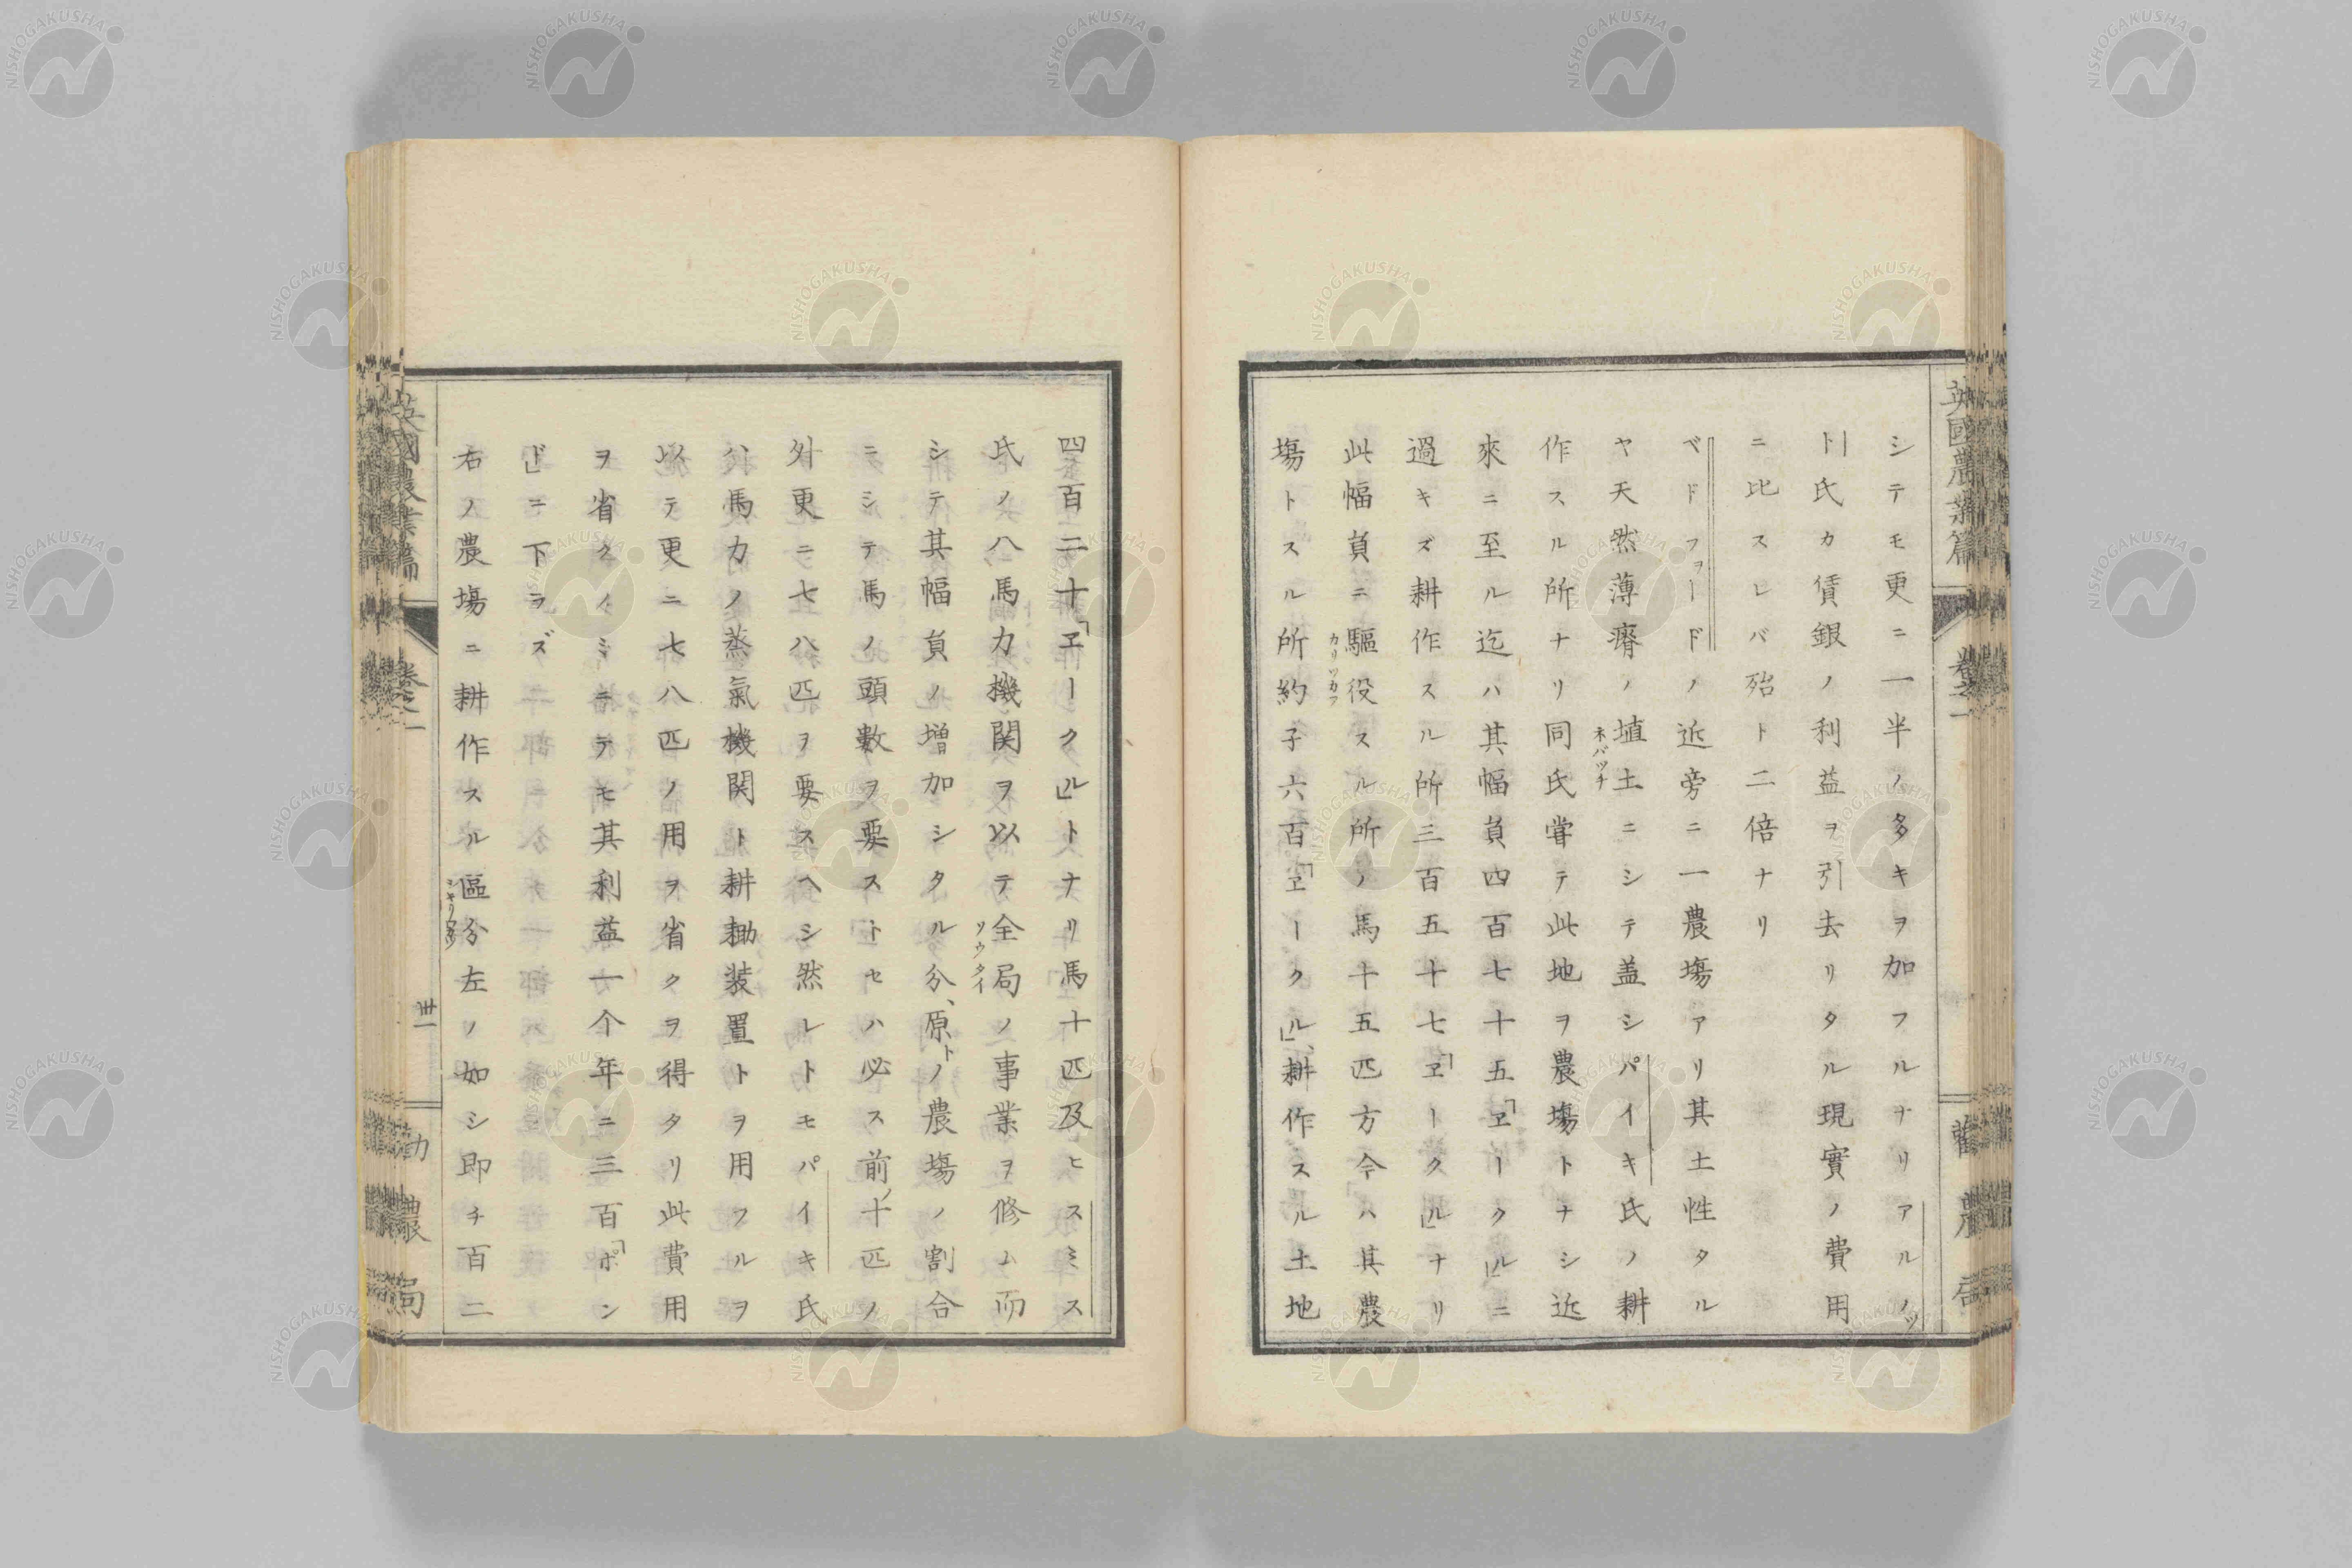 英國農業篇 卷之一 勸農局
シテモ更ニ一半ノ多キヲ加フルナリアルノッ
ト氏カ賃銀ノ利益ヲ引去リタル現實ノ費用
ニ比スレバ殆ト二倍ナリ
ベドフォードノ近旁ニ一農塲アリ其土性タル
ヤ天然薄瘠ノ埴土ニシテ盖シパイキ氏ノ耕
ネバツチ
作スル所ナリ同氏甞テ此地ヲ農塲トナシ近
來ニ至ル迄ハ其幅負四百七十五「ヱークル」ニ
過キズ耕作スル所三百五十七「ヱークル」ナリ
此幅負ニ驅役スル所ノ馬十五匹方今ハ其農
カリツカフ
塲トスル所約子六百「ヱークル」、耕作スル土地
四百二十「ヱークル」トナリ馬十匹及ヒスミス
氏ノ八馬力機関ヲ以テ全局ノ事業ヲ修ム而
ソウタイ
シテ其幅負ノ增加シタル分、原トノ農塲ノ割合
ニシテ馬ノ頭數ヲ要ストセハ必ス前ノ十匹ノ
外更ニ七八匹ヲ要スヘシ然レトモパイキ氏
ハ馬力ノ蒸氣機関ト耕耡装置トヲ用フルヲ
以テ更ニ七八匹ノ用ヲ省クヲ得タリ此費用
ヲ省クノミニテモ其利益一个年ニ三百「ポン
ド」ニ下ラズ
右ノ農塲ニ耕作スル區分左ノ如シ即チ百二
英國農業篇 卷之一 卅一 勸農局
NISHOGAKUSHA